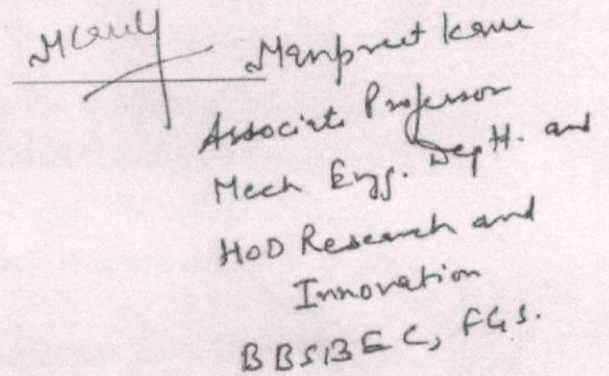 Manpreet Kaur
Associate Professor
Mech Engg. Deptt. and
HOD Research and
Innovation
BBSBEC, FGS.